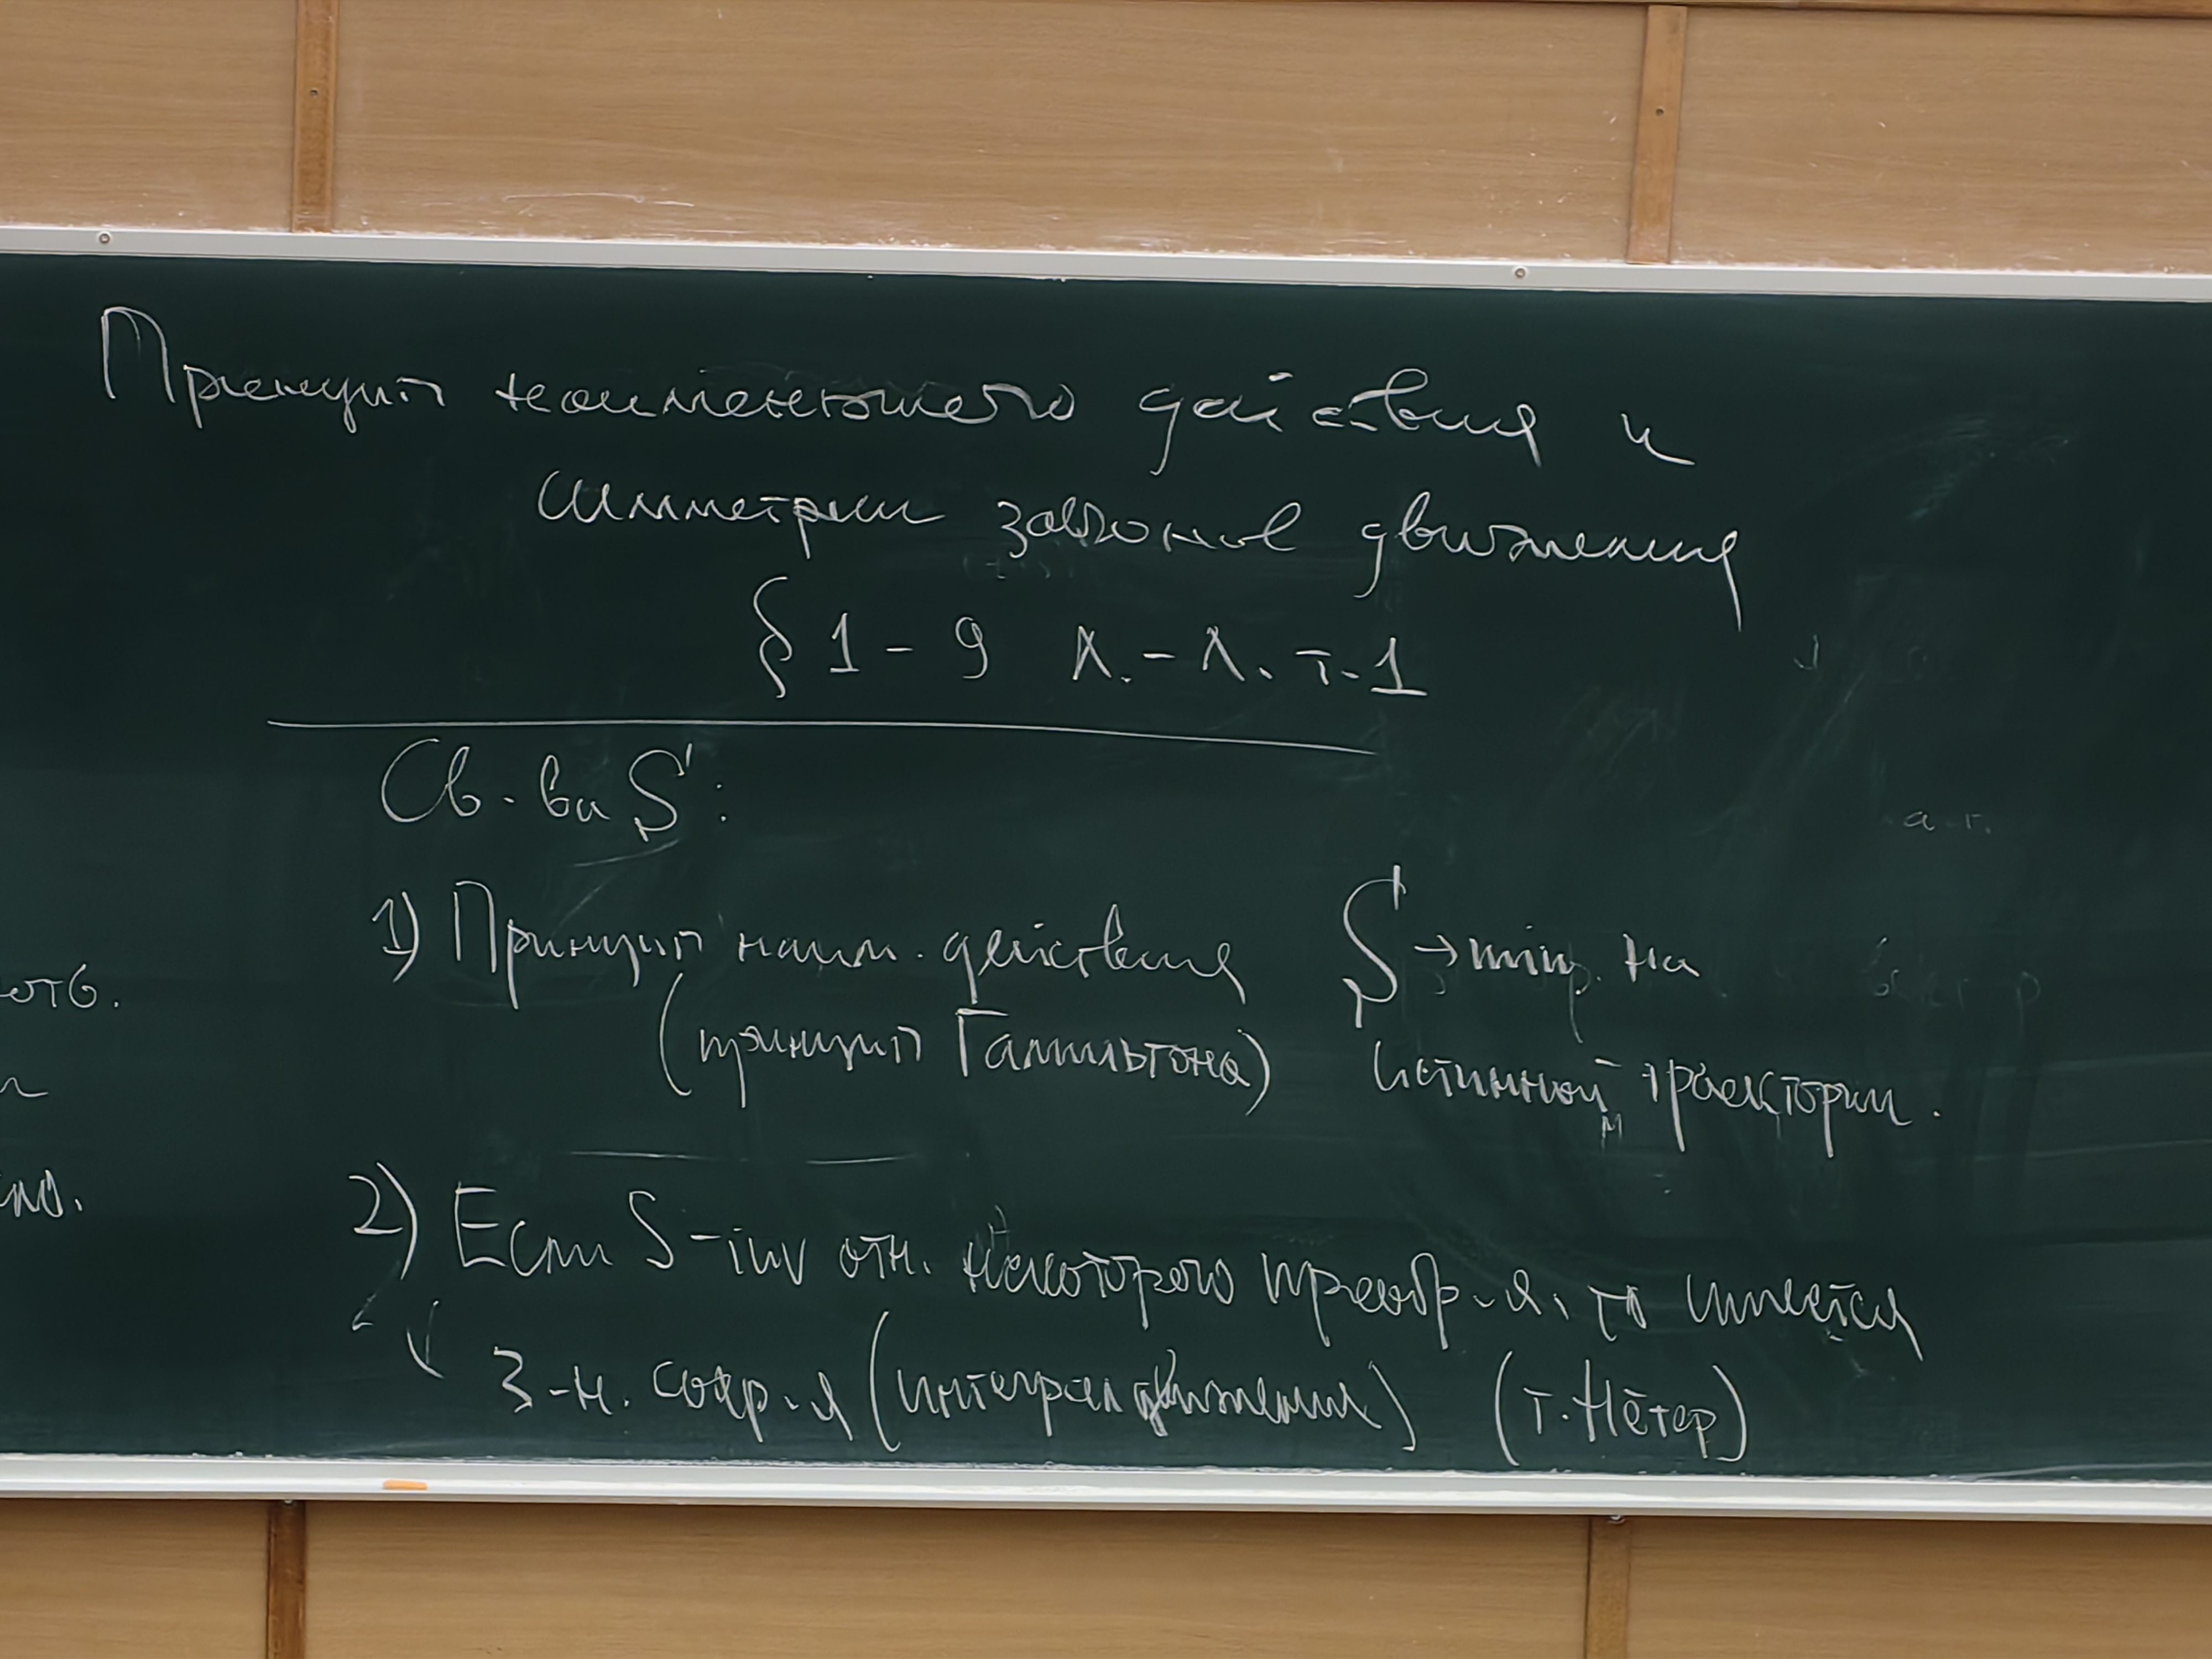 Принцип наименьшего действия и
симметрии законов движения
§ 1 - 9 Л. - Л. т. 1
Св-ва S:
1) Принцип наим. действия S → min. на
(принцип Гамильтона) истинной траектории.
2) Если S - inv отн. некоторого преобр-я, то имеется
з-н. сохр-я (интеграл движения) (т. Нётер)